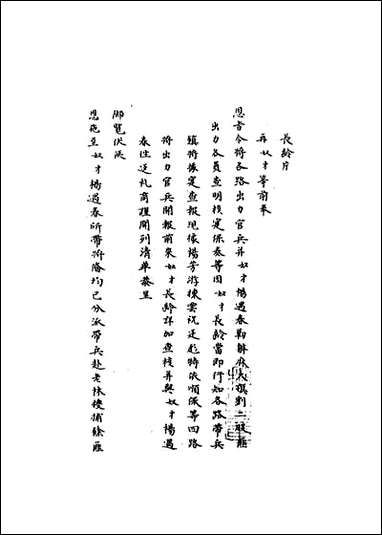 長齡片
再奴才等前奉
恩旨令將各路出力官兵并奴才楊遇春勦辦麻大旗劉二股匪
出力各員查明核定保奏等因奴才長齡當即行知各路帶兵
鎮將據實查報現據楊芳游棟雲祝廷彪時欲順保等四路
將出力官兵開報前來奴才長齡詳加查核并與奴才楊遇
春往返札商謹開列清單恭呈
御覽伏候
恩施至奴才楊遇春所帶將備均已分派帶兵赴老林搜捕餘匪